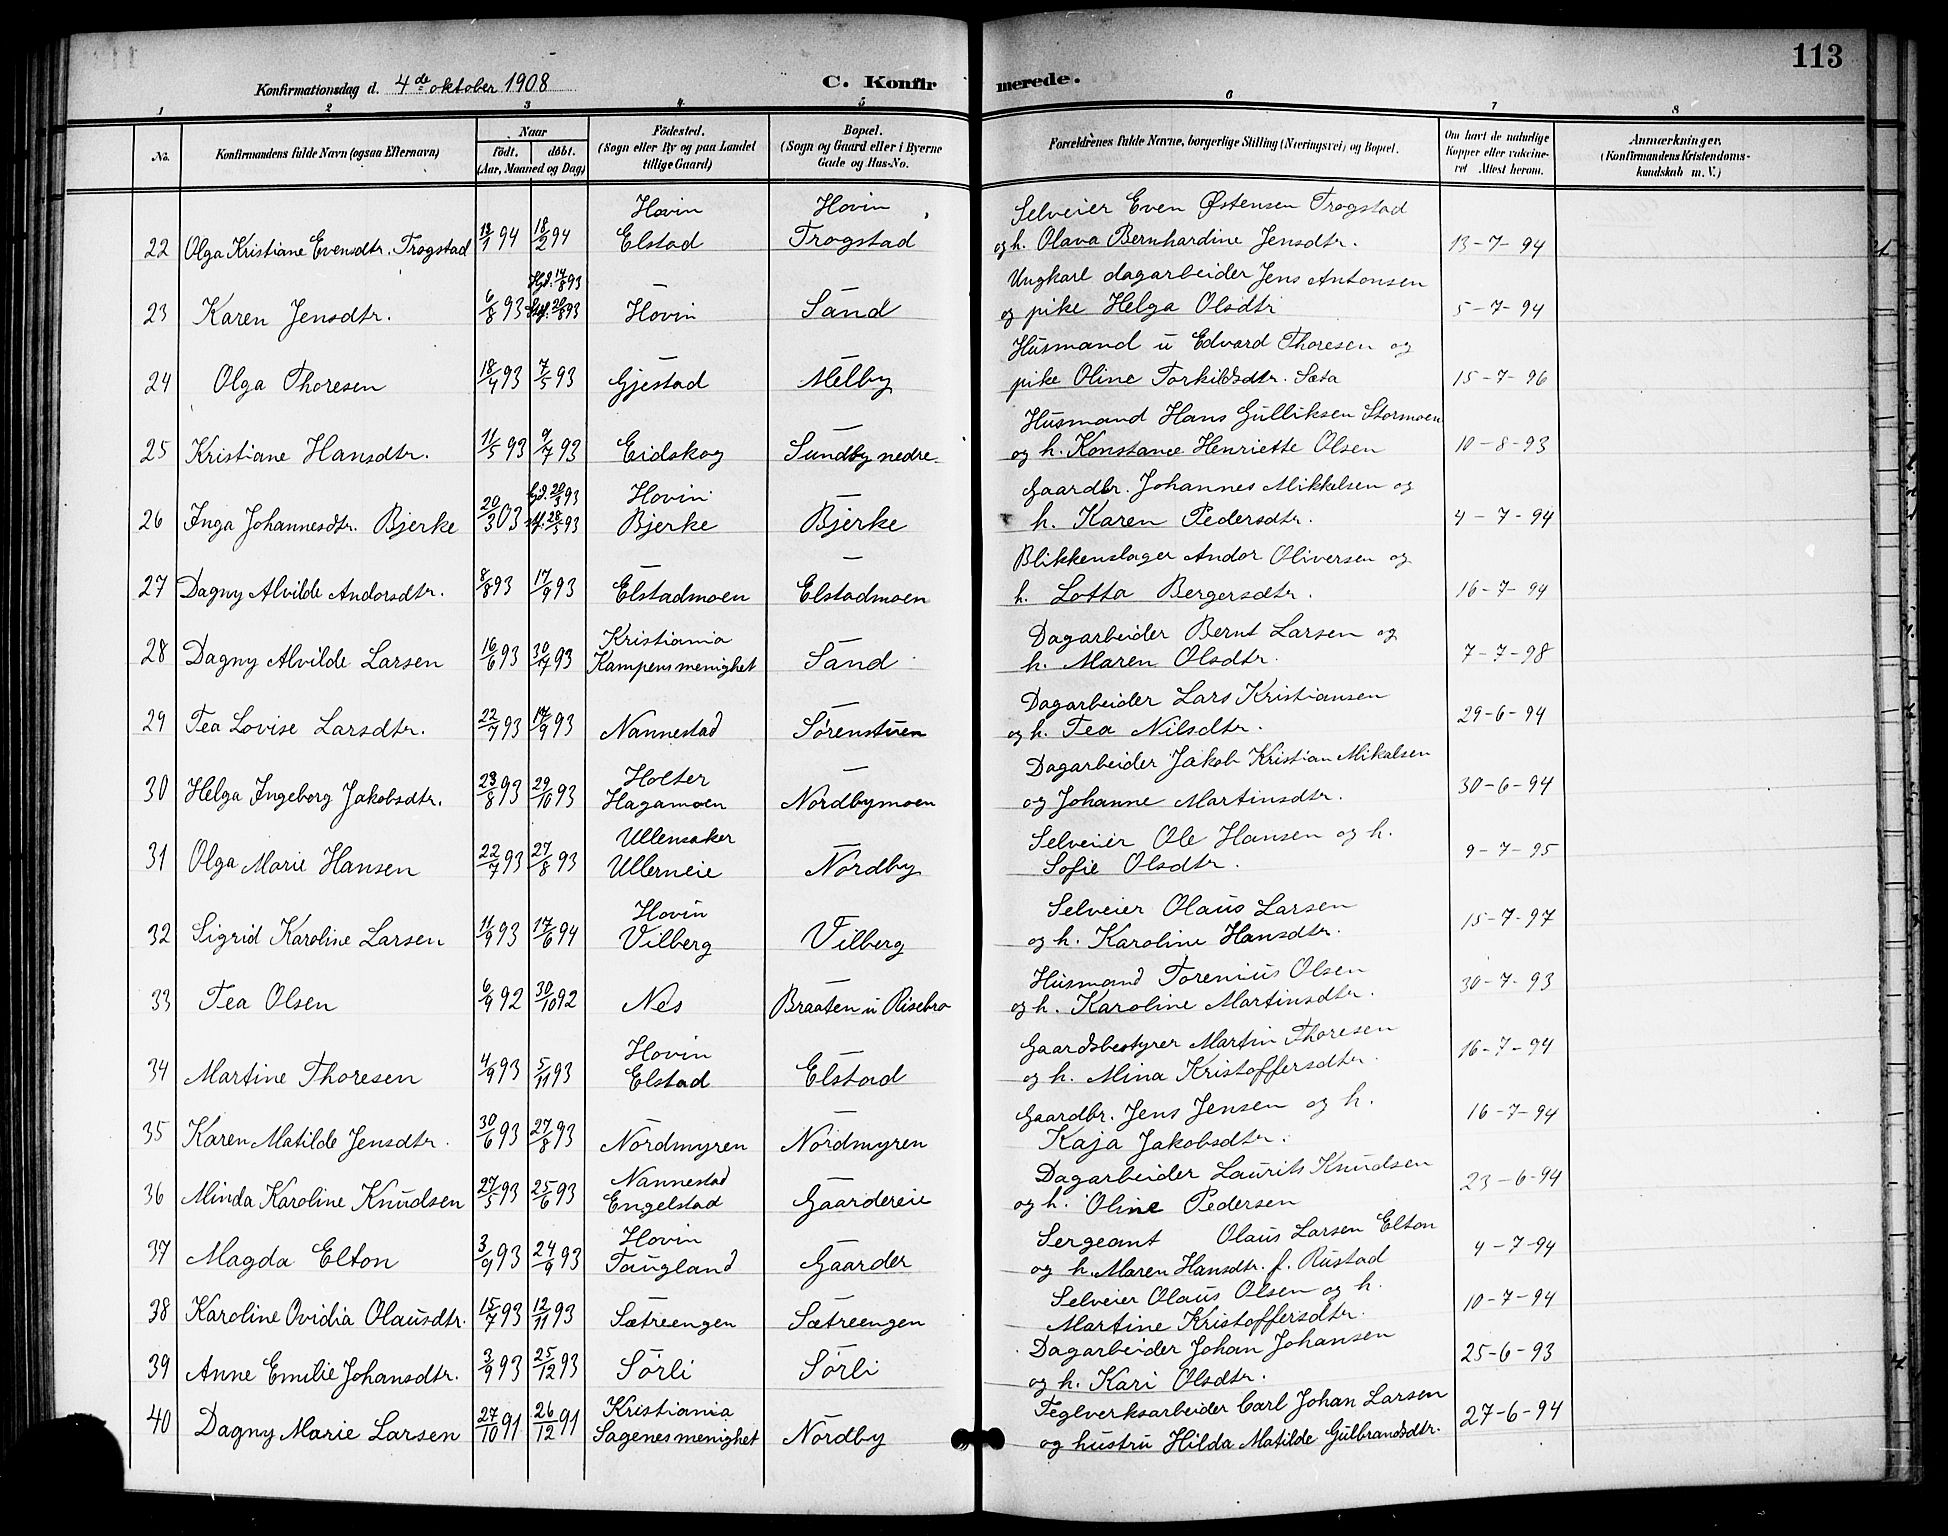 113
Konfirmationsdag d. 4de oktober 1908 C. Konfirmerede.
1 2 3 4 5 6 7 8
No. Konfirmandens fulde Navn (ogsaa Efternavn) Naar født. døbt. (Aar, Maaned og Dag) Fødested. (Sogn eller By og paa Landet tillige Gaard) Bopæl. (Sogn og Gaard eller i Byerne Gade og Hus-No.) Forældrenes fulde Navne, borgerlige Stilling (Næringsvei) og Bopæl. Om havt de naturlige Kopper eller vaccineret Attest herom. Anmærkninger. (Konfirmandens Kristendomskundskab m. V.)
Hovin Hovin Selveier Even Østensen Trogstad
22 Olga Kristiane Evensdtr. Trogstad 18/2 94 Elstad Trogstad og h. Olava Bernhardine Jensdtr. 13-7-94
Ungkarl dagarbeider Jens Antonsen
23 Karen Jensdtr. 6/8 93 Hovin Sand og pike Helga Olsdtr 5-7-94
Husmand u Edvard Thoresen og
24 Olga Thoresen 18/4 93 7/5 93 Gjestad Melby pike Oline Torkildsdtr. Sæta 15-7-96
Husmand Hans Gulliksen Stormoen
25 Kristiane Hansdtr. 11/5 93 9/7 93 Eidskog Sundby nedre. og h. Konstance Henriette Olsen 10-8-93
Hovin Gaardbr. Johannes Mikkelsen og
26 Inga Johannesdtr. Bjerke 20/3 03 28/5 93 Bjerke Bjerke h. Karen Pedersdtr. 4-7-94
Blikkenslager Andor Oliversen og
27 Dagny Alvilde Andorsdtr. 8/8 93 17/9 93 Elstadmoen Elstadmoen h. Lotta Bergersdtr. 16-7-94
Kristiania Dagarbeider Bernt Larsen og
28 Dagny Alvilde Larsen 16/6 93 30/7 93 Kampens menighet Sand h. Maren Olsdtr. 7-7-98
Dagarbeider Lars Kristiansen
29 Tea Lovise Larsdtr. 22/7 93 17/9 93 Nannestad Sørenstuen og h. Tea Nilsdtr. 29-6-94
Holter Dagarbeider Jakob Kristian Mikalsen
30 Helga Ingeborg Jakobsdtr. 23/8 93 29/10 93 Hagamoen Nordbymoen og Johanne Martinsdtr. 30-6-94
Ullensaker Selveier Ole Hansen og h.
31 Olga Marie Hansen 22/7 93 27/8 93 Ullerneie Nordby Sofie Olsdtr. 9-7-95
Hovin Selveier Olaus Larsen
32 Sigrid Karoline Larsen 11/9 93 17/6 94 Vilberg Vilberg og h. Karoline Hansdtr. 15-7-97
Husmand Torenius Olsen
33 Tea Olsen 6/9 92 30/10 92 Nes Braaten u Risebro og h. Karoline Martinsdtr. 30-7-93
Hovin Gaardsbestyrer Martin Thoresen
34 Martine Thoresen 4/9 93 5/11 93 Elstad Elstad og h. Mina Kristoffersdtr. 16-7-94
Gaardbr. Jens Jensen og h.
35 Karen Matilde Jensdtr. 30/6 93 27/8 93 Nordmyren Nordmyren Kaja Jakobsdtr. 16-7-94
Nannestad Dagarbeider Laurits Knudsen
36 Minda Karoline Knudsen 27/5 93 25/6 93 Engelstad Gaardereie og h. Oline Pedersen 23-6-94
Hovin Sergeant Olaus Larsen Elton
37 Magda Elton 3/9 93 24/9 93 Taugland Gaarder og h. Maren Hansdtr. f. Rustad 4-7-94
Selveier Olaus Olsen og h.
38 Karoline Ovidia Olausdtr. 15/7 93 12/11 93 Sætreengen Sætreengen Martine Kristoffersdtr. 10-7-94
Dagarbeider Johan Johansen
39 Anne Emilie Johansdtr. 3/9 93 25/12 93 Sørli Sørli og h. Kari Olsdtr. 25-6-93
Kristiania Teglverksarbeider Carl Johan Larsen
40 Dagny Marie Larsen 27/10 91 26/12 91 Sagenes menighet Nordby og hustru Hilda Matilde Gulbrandsdtr. 27-6-94